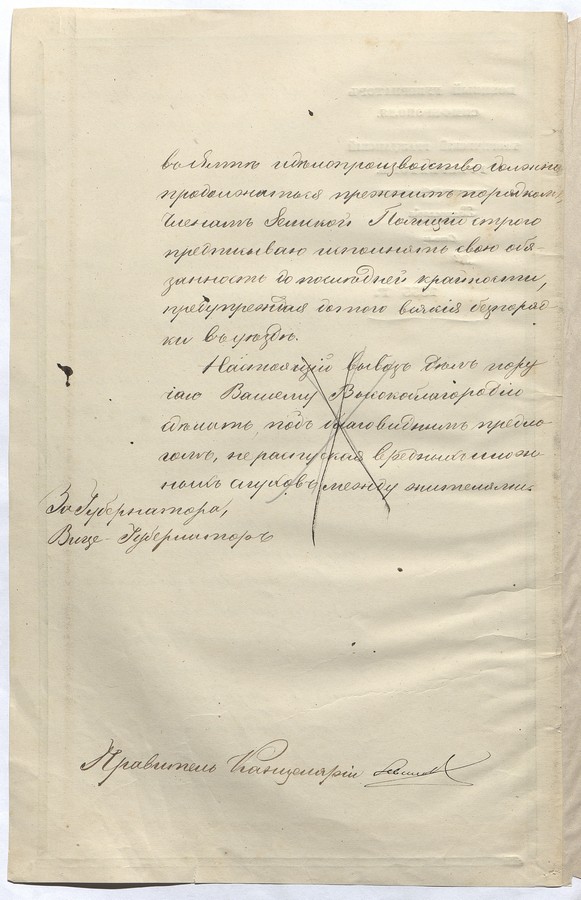 дѣлопроизводство должно
продолжаться прежнимъ порядкомъ,
Членамъ Земской Полиціи строго
предписываю исполнять свою обя-
занность до послѣдней крайности,
предупреждая до того всякія безпоряд-
ки въ уѣздѣ.
Настоящій вывозъ дѣлъ пору-
чаю Вашему Высокоблагородію
сдѣлать, подъ благовиднымъ предло-
гомъ, не распуская вредныхъ и лож-
ныхъ слуховъ между жителями.
За Губернатора,
Вице-Губернаторъ
Правитель Канцеляріи